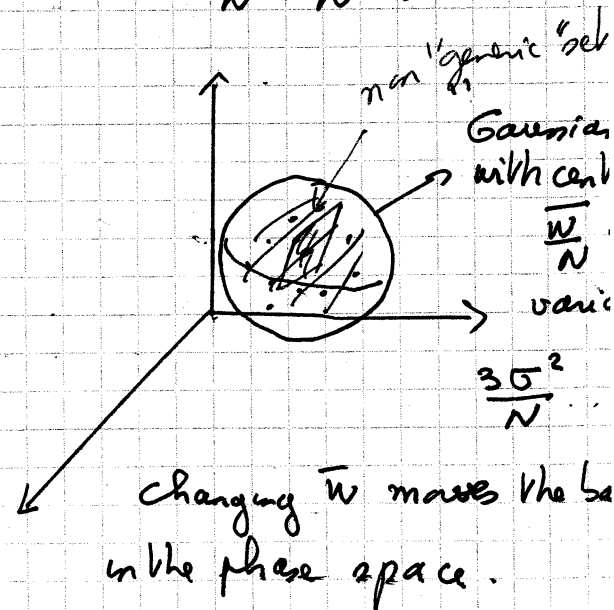 non "generic" set
Gaussian
with cent
w̅
N
varia
3σ²
N
changing w̅ moves the ba
in the phase space.